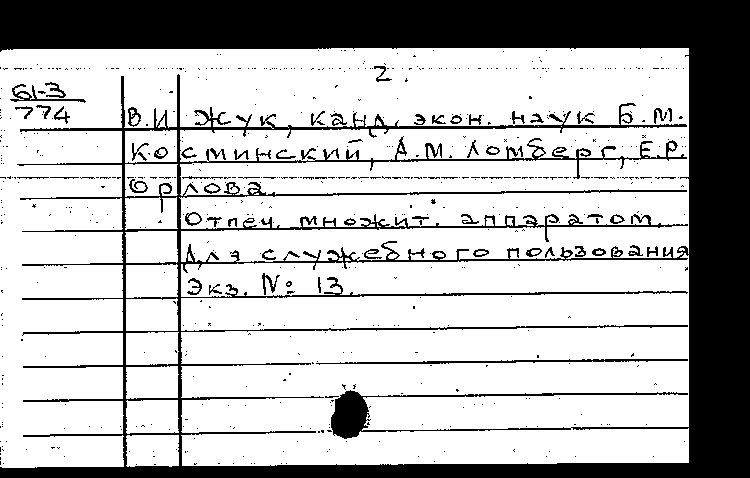 2.
61-3
774
В.И Жук, канд. экон. наук Б.М.
Косминский, А.М. Ломберг, Е.Р.
Орлова.
Отпеч. множит. аппаратом.
Для служебного пользования
Экз. № 13.